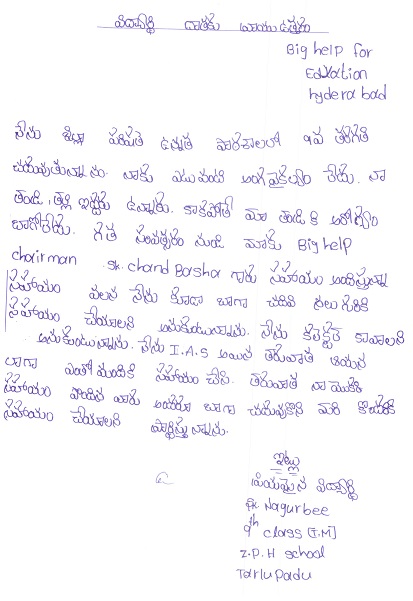 విద్యార్థి దాతకు వ్రాయు ఉత్తరం
Big help for
Education
hyderabad
నేను జిల్లా పరిషత్ ఉన్నత పాఠశాలలో 9వ తరగతి
చదువుతున్నాను. నాకు ఎటువంటి అంగవైకల్యం లేదు. నా
తండ్రి, తల్లి ఇద్దరు ఉన్నారు. కాకపోతే మా తండ్రికి ఆరోగ్యం
బాగోలేదు. గత సంవత్సరం నుండి మాకు Big help
chairman sk. chand Basha గారు సహాయం అందిస్తున్నారు
సహాయం వలన నేను కూడా బాగా చదివి నలుగురికి
సహాయం చేయాలని అనుకుంటున్నాను. నేను కలెక్టర్ కావాలని
అనుకుంటున్నాను. నేను I.A.S అయిన తరువాత ఆయన
లాగా ఎంతోమందికి సహాయం చేసి. తరువాత నా యొక్క
సహాయం పొందిన వారు అందరూ బాగా చదువుకొని మరి కొందరికి
సహాయం చేయాలని ప్రార్థిస్తున్నాను.
ఇట్లు
ప్రియమైన విద్యార్థి
sk. Nagurbee
9th class [T.M]
Z.P.H school
Tarlupadu